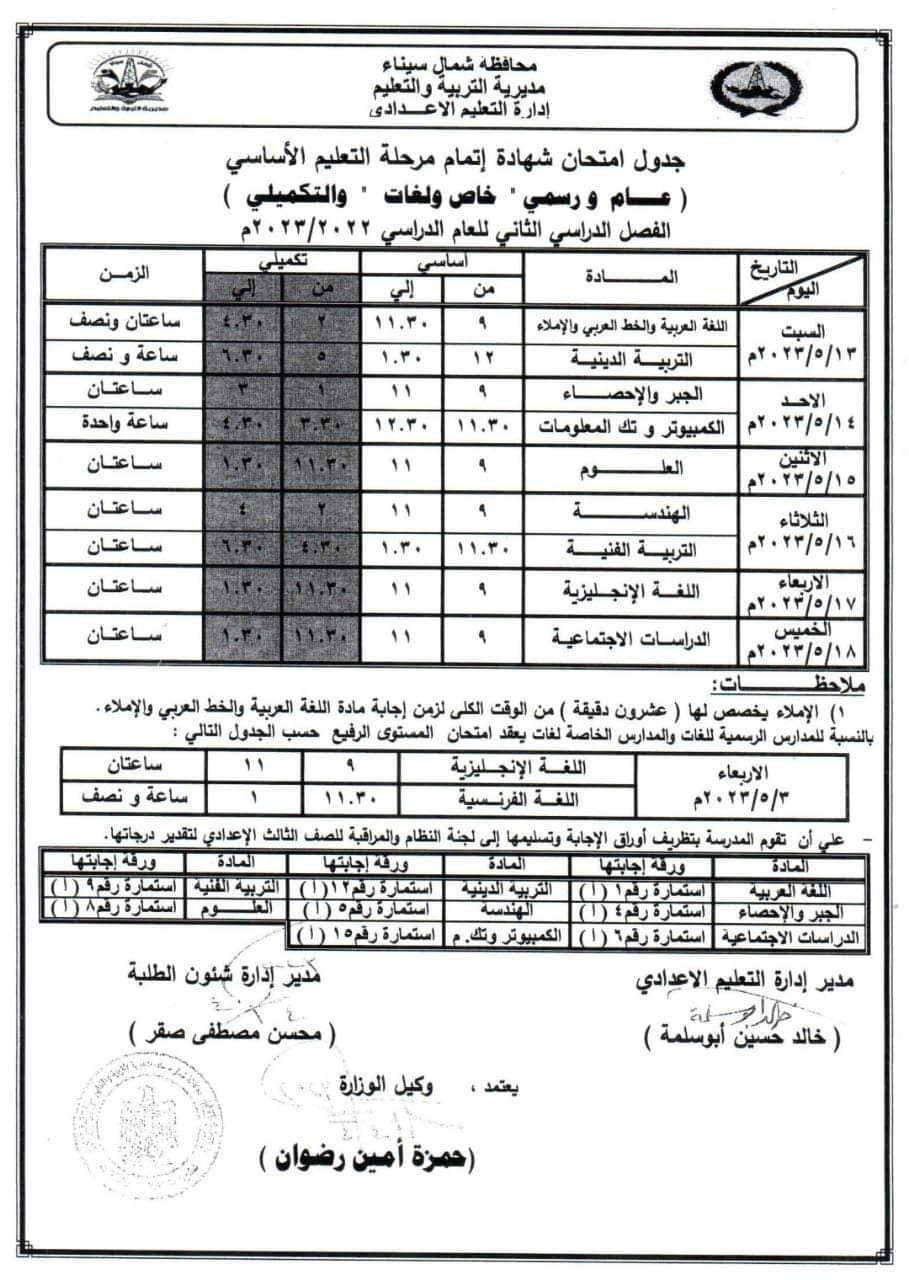 محافظة شمال سيناء
مديرية التربية والتعليم
إدارة التعليم الاعـــدادى
مديرية التربية والتعليم
جدول امتحان شهادة إتمام مرحلة التعليم الأساسي
( عـــام و رسمي " خاص ولغات " والتكميلي )
الفصل الدراسي الثاني للعام الدراسي ٢٠٢٣/٢٠٢٢م
التاريخ اليوم المـــــادة اساسي تكميلي الزمـن
من إلي من إلي
السبت ٢٠٢٣/٥/١٣م اللغة العربية والخط العربي والإملاء ٩ ١١.٣٠ ٢ ٤.٣٠ ساعتان ونصف
التربيـة الدينيـة ١٢ ١.٣٠ ٥ ٦.٣٠ ساعة و نصف
الاحـد ٢٠٢٣/٥/١٤م الجبر والإحصـــاء ٩ ١١ ١ ٣ ســاعتـان
الكمبيوتر و تك المعلومات ١١.٣٠ ١٢.٣٠ ٣.٣٠ ٤.٣٠ ساعة واحدة
الاثنين ٢٠٢٣/٥/١٥م العلـــــوم ٩ ١١ ١١.٣٠ ١.٣٠ ســاعتـان
الثلاثاء ٢٠٢٣/٥/١٦م الهندســـــة ٩ ١١ ٢ ٤ ســاعتـان
التربيـة الفنيــة ١١.٣٠ ١.٣٠ ٤.٣٠ ٦.٣٠ ســاعتـان
الاربعاء ٢٠٢٣/٥/١٧م اللغـة الإنجـليزية ٩ ١١ ١١.٣٠ ١.٣٠ ســاعتـان
الخميس ٢٠٢٣/٥/١٨م الدراسـات الاجتمـاعية ٩ ١١ ١١.٣٠ ١.٣٠ ســاعتـان
ملاحظـــــــات:
١) الإملاء يخصص لها ( عشرون دقيقة ) من الوقت الكلى لزمن إجابة مادة اللغة العربية والخط العربي والإملاء .
بالنسبة للمدارس الرسمية للغات والمدارس الخاصة لغات يعقد امتحان المستوى الرفيع حسب الجدول التالي :
الاربعاء ٢٠٢٣/٥/٣م اللغــة الإنجـليزية ٩ ١١ ساعتان
اللغـة الفرنـسية ١١.٣٠ ١ ساعة و نصف
- علي أن تقوم المدرسة بتظريف أوراق الإجابة وتسليمها إلى لجنة النظام والمراقبة للصف الثالث الإعدادي لتقدير درجاتها.
المادة ورقة إجابتها المادة ورقة إجابتها المادة ورقة إجابتها
اللغة العربية استمارة رقم١ (أ) التربية الدينية استمارة رقم١٢(أ) التربية الفنية استمارة رقم٩ (أ)
الجبر والإحصاء استمارة رقم٤ (أ) الهندسة استمارة رقم٥ (أ) العلـــوم استمارة رقم٨ (أ)
الدراسات الاجتماعية استمارة رقم٦ (أ) الكمبيوتر وتك. م استمارة رقم١٥ (أ)
مدير إدارة التعليم الاعدادي مدير إدارة شئون الطلبة
( خالد حسين أبوسلمة ) ( محسن مصطفى صقر )
يعتمد ، وكيل الوزارة
(حمزة أمين رضوان )